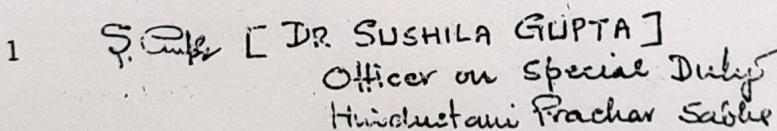 1 S. Gupta [ DR SUSHILA GUPTA ]
Officer on Special Duty
Hindustani Prachar Sabha